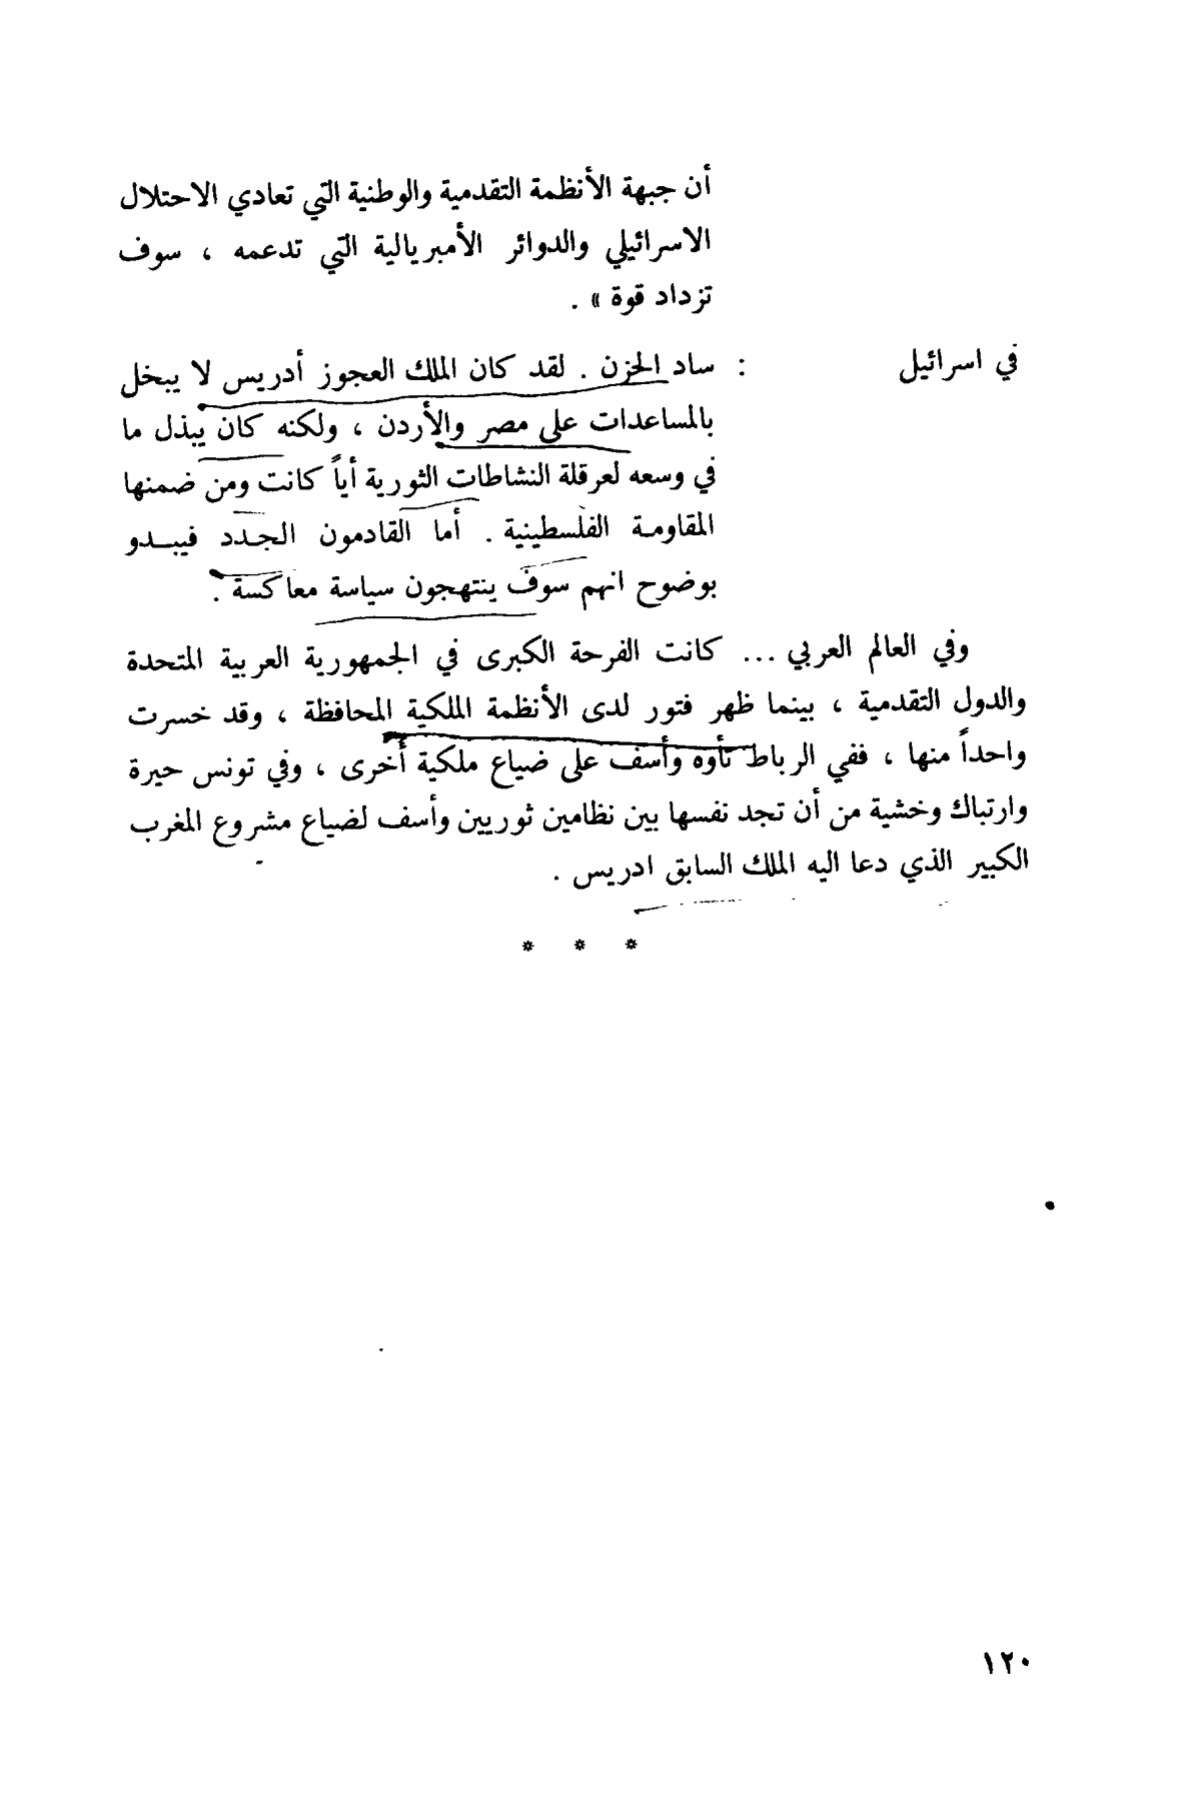 أن جبهة الأنظمة التقدمية والوطنية التي تعادي الاحتلال
الاسرائيلي والدوائر الأمبريالية التي تدعمه ، سوف
تزداد قوة » .
في اسرائيل : ساد الحزن . لقد كان الملك العجوز أدريس لا يبخل
بالمساعدات على مصر والأردن ، ولكنه كان يبذل ما
في وسعه لعرقلة النشاطات الثورية أياً كانت ومن ضمنها
المقاومة الفلسطينية . أما القادمون الجدد فيبدو
بوضوح انهم سوف ينتهجون سياسة معاكسة .
وفي العالم العربي ... كانت الفرحة الكبرى في الجمهورية العربية المتحدة
والدول التقدمية ، بينما ظهر فتور لدى الأنظمة الملكية المحافظة ، وقد خسرت
واحداً منها ، ففي الرباط تأوه وأسف على ضياع ملكية أخرى ، وفي تونس حيرة
وارتباك وخشية من أن تجد نفسها بين نظامين ثوريين وأسف لضياع مشروع المغرب
الكبير الذي دعا اليه الملك السابق ادريس .
* * *
١٢٠